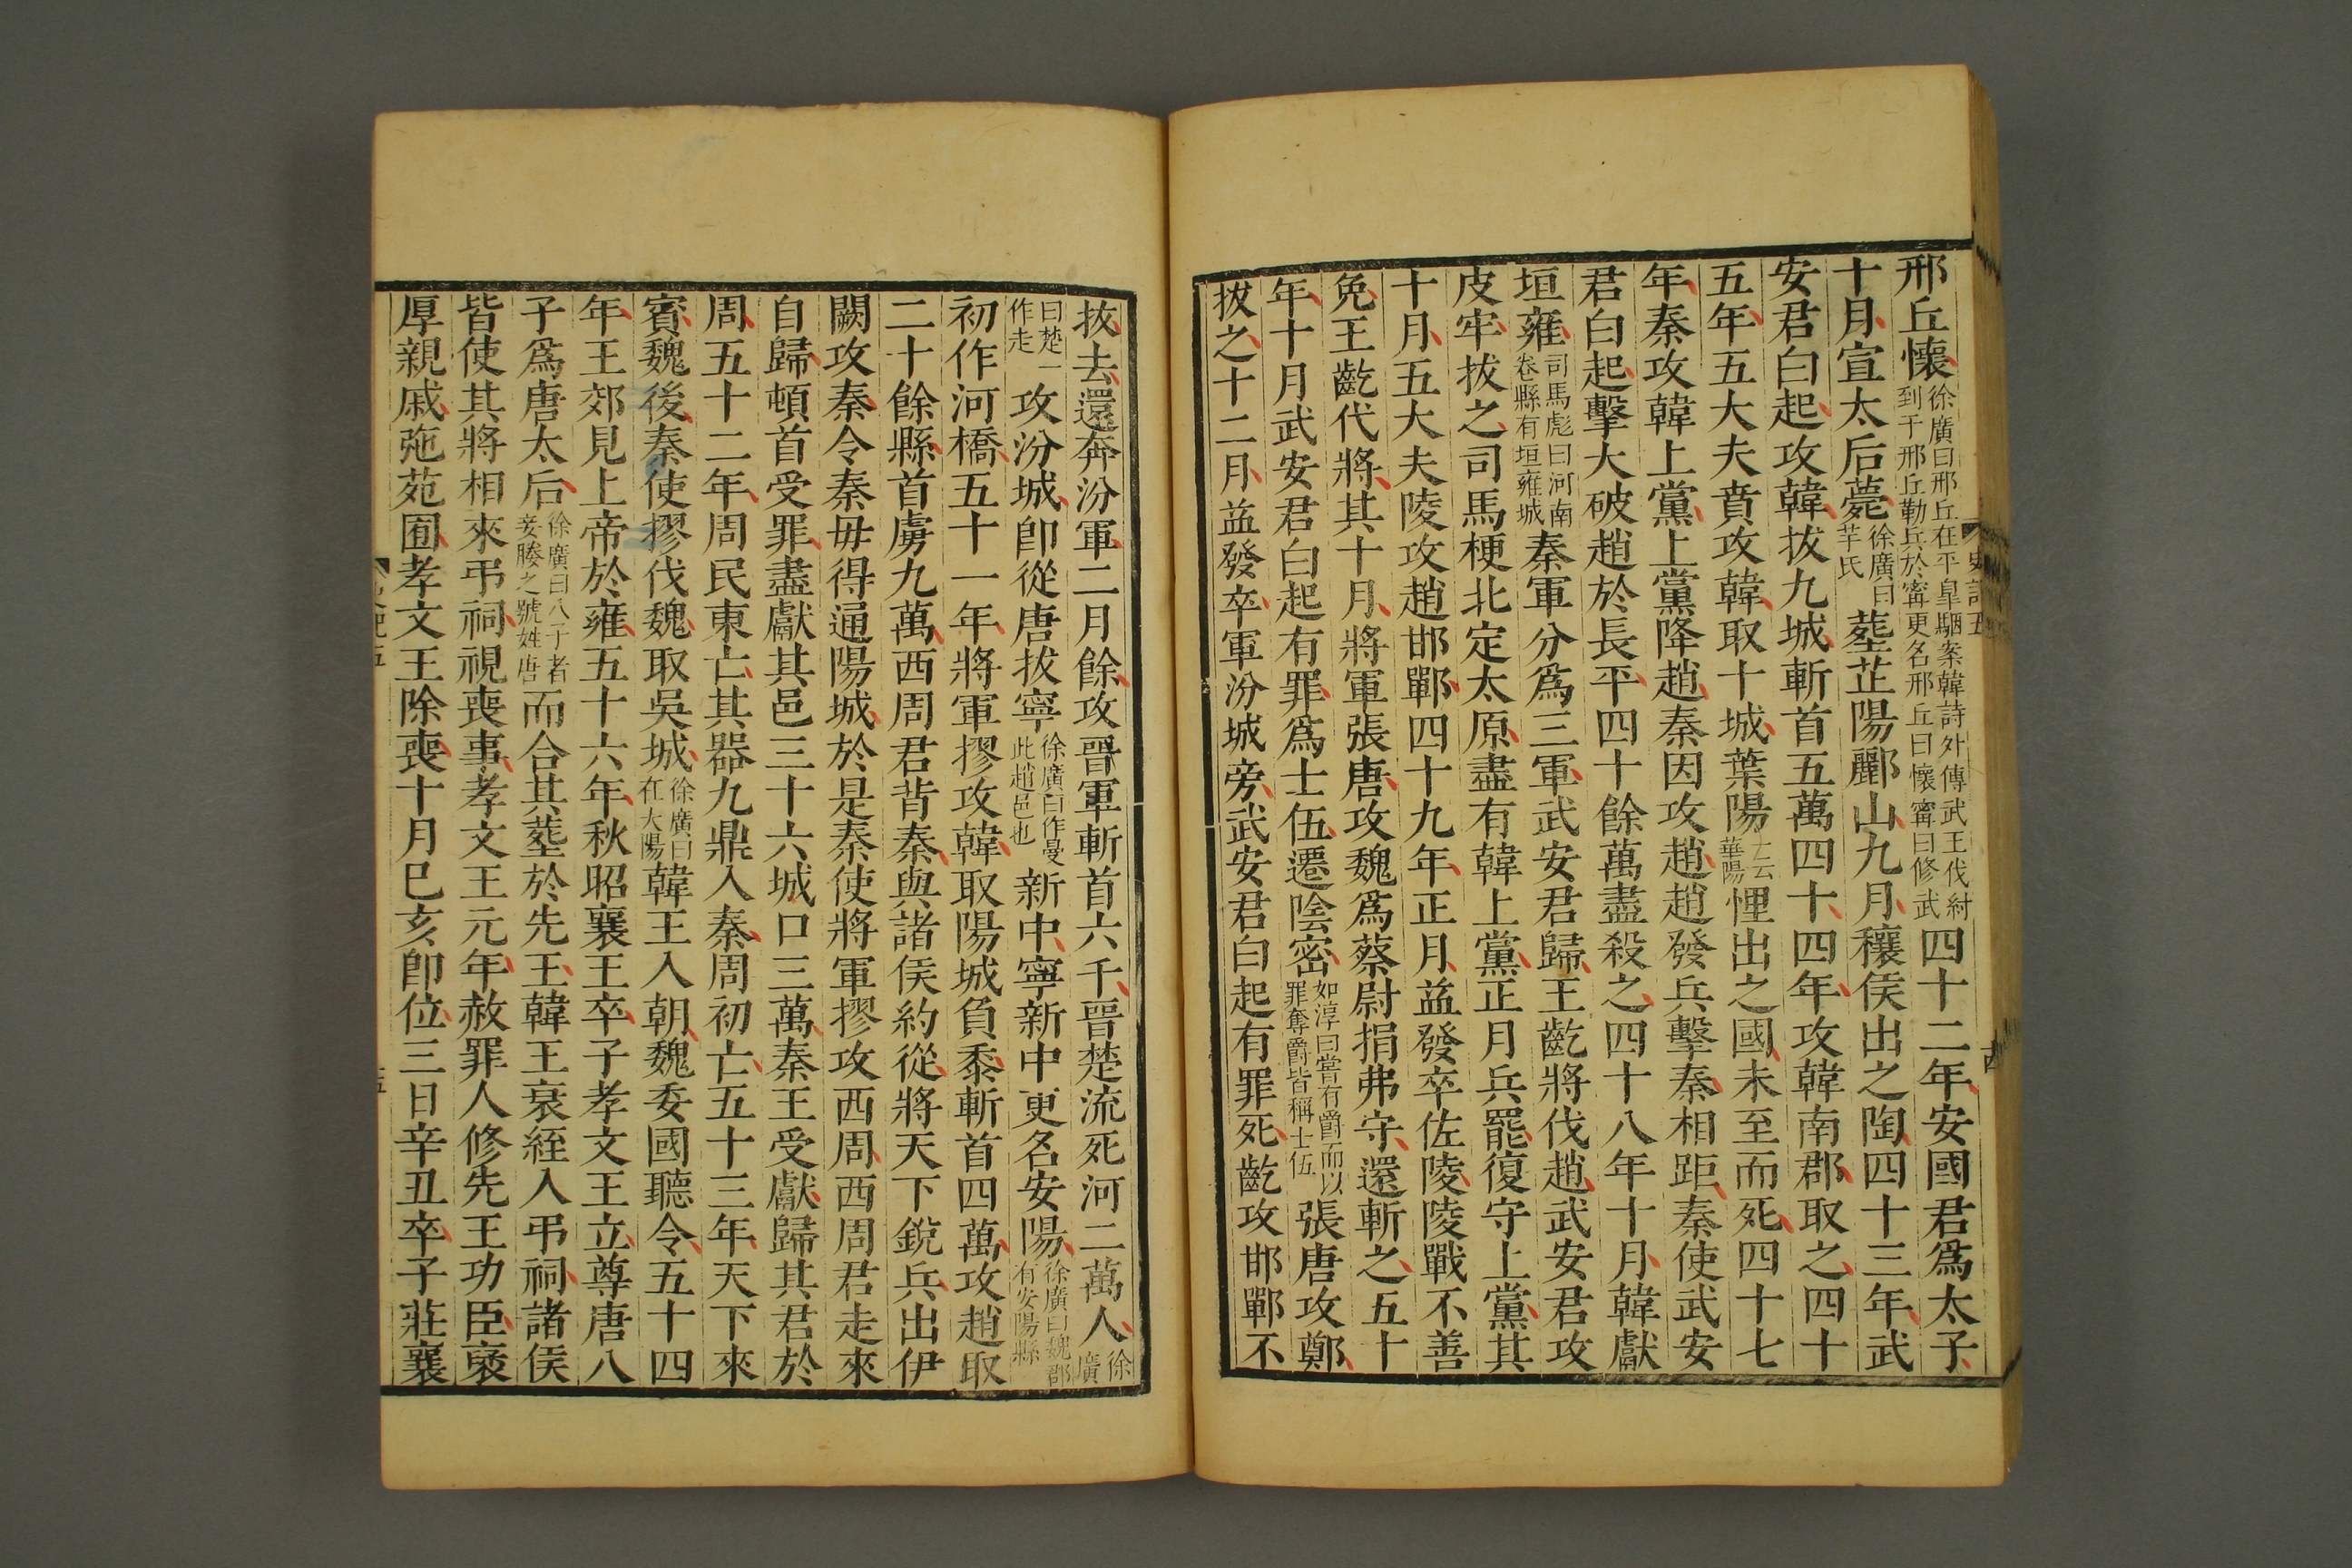 邢丘懷徐廣曰邢丘在平皐駰案韓詩外傳武王伐紂到于邢丘勒兵於甯更名邢丘曰懷甯曰修武四十二年安國君爲太子
十月宣太后薨徐廣曰芉氏塟芷陽酈山九月穰侯出之陶四十三年武
安君白起攻韓拔九城斬首五萬四十四年攻韓南郡取之四十
五年五大夫賁攻韓取十城葉陽一云華陽悝出之國未至而死四十七
年秦攻韓上黨上黨降趙秦因攻趙趙發兵擊秦相距秦使武安
君白起擊大破趙於長平四十餘萬盡殺之四十八年十月韓獻
垣雍司馬彪曰河南卷縣有垣雍城秦軍分爲三軍武安君歸王齕將伐趙武安君攻
皮牢拔之司馬梗北定太原盡有韓上黨正月兵罷復守上黨其
十月五大夫陵攻趙邯鄲四十九年正月益發卒佐陵陵戰不善
免王齕代將其十月將軍張唐攻魏爲蔡尉捐弗守還斬之五十
年十月武安君白起有罪爲士伍遷陰密如淳曰嘗有爵而以罪奪爵皆稱士伍張唐攻鄭
拔之十二月益發卒軍汾城旁武安君白起有罪死齕攻邯鄲不
史記五
拔去還奔汾軍二月餘攻晉軍斬首六千晉楚流死河二萬人徐廣
曰楚一作走攻汾城即從唐拔寧徐廣曰作曼此趙邑也新中寧新中更名安陽徐廣曰魏郡有安陽縣
初作河橋五十一年將軍摎攻韓取陽城負黍斬首四萬攻趙取
二十餘縣首虜九萬西周君背秦與諸侯約從將天下銳兵出伊
闕攻秦令秦毋得通陽城於是秦使將軍摎攻西周西周君走來
自歸頓首受罪盡獻其邑三十六城口三萬秦王受獻歸其君於
周五十二年周民東亡其器九鼎入秦周初亡五十三年天下來
賓魏後秦使摎伐魏取吳城徐廣曰在大陽韓王入朝魏委國聽令五十四
年王郊見上帝於雍五十六年秋昭襄王卒子孝文王立尊唐八
子爲唐太后徐廣曰八子者妾媵之號姓唐而合其塟於先王韓王衰絰入弔祠諸侯
皆使其將相來弔祠視喪事孝文王元年赦罪人修先王功臣褒
厚親戚弛苑囿孝文王除喪十月己亥即位三日辛丑卒子莊襄